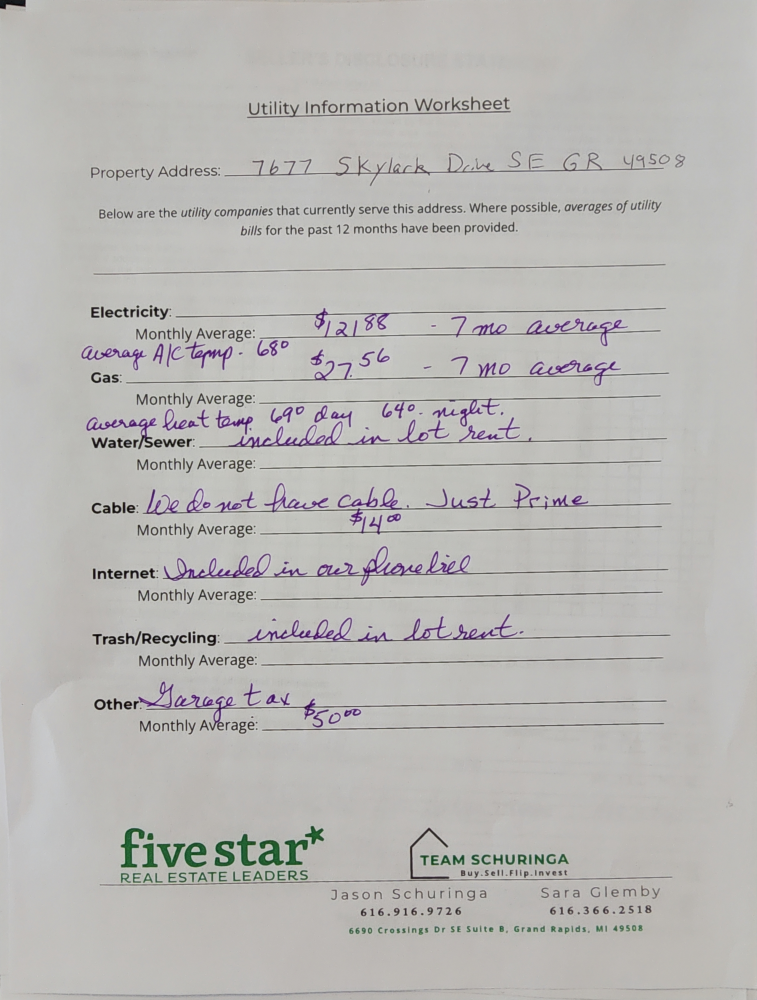 Utility Information Worksheet
Property Address: 7677 Skylark Drive SE GR 49508
Below are the utility companies that currently serve this address. Where possible, averages of utility
bills for the past 12 months have been provided.
Electricity:
Monthly Average: $121.88 - 7 mo average
average A/C temp. 68°
Gas: $27.56 - 7 mo average
Monthly Average:
average heat temp 69° day 64° night.
Water/Sewer: included in lot rent.
Monthly Average:
Cable: We do not have cable. Just Prime
Monthly Average: $14.00
Internet: Included in our phone bill
Monthly Average:
Trash/Recycling: included in lot rent.
Monthly Average:
Other: Garage tax
Monthly Average: $50.00
five star*
REAL ESTATE LEADERS
TEAM SCHURINGA
Buy.Sell.Flip.Invest
Jason Schuringa Sara Glemby
616.916.9726 616.366.2518
6690 Crossings Dr SE Suite B, Grand Rapids, MI 49508